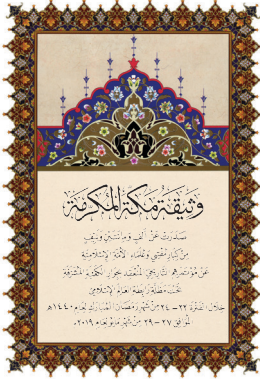 وثيقة مكة المكرمة
صدرت عن ألف ومائتين ونيف
من كبار مفتي وعلماء الأمة الإسلامية
عن مؤتمرهم التاريخي المنعقد بجوار الكعبة المشرفة
تحت مظلة رابطة العالم الإسلامي
خلال الفترة ٢٢-٢٤ من شهر رمضان المبارك لعام ١٤٤٠هـ
الموافق ٢٧-٢٩ من شهر مايو لعام ٢٠١٩